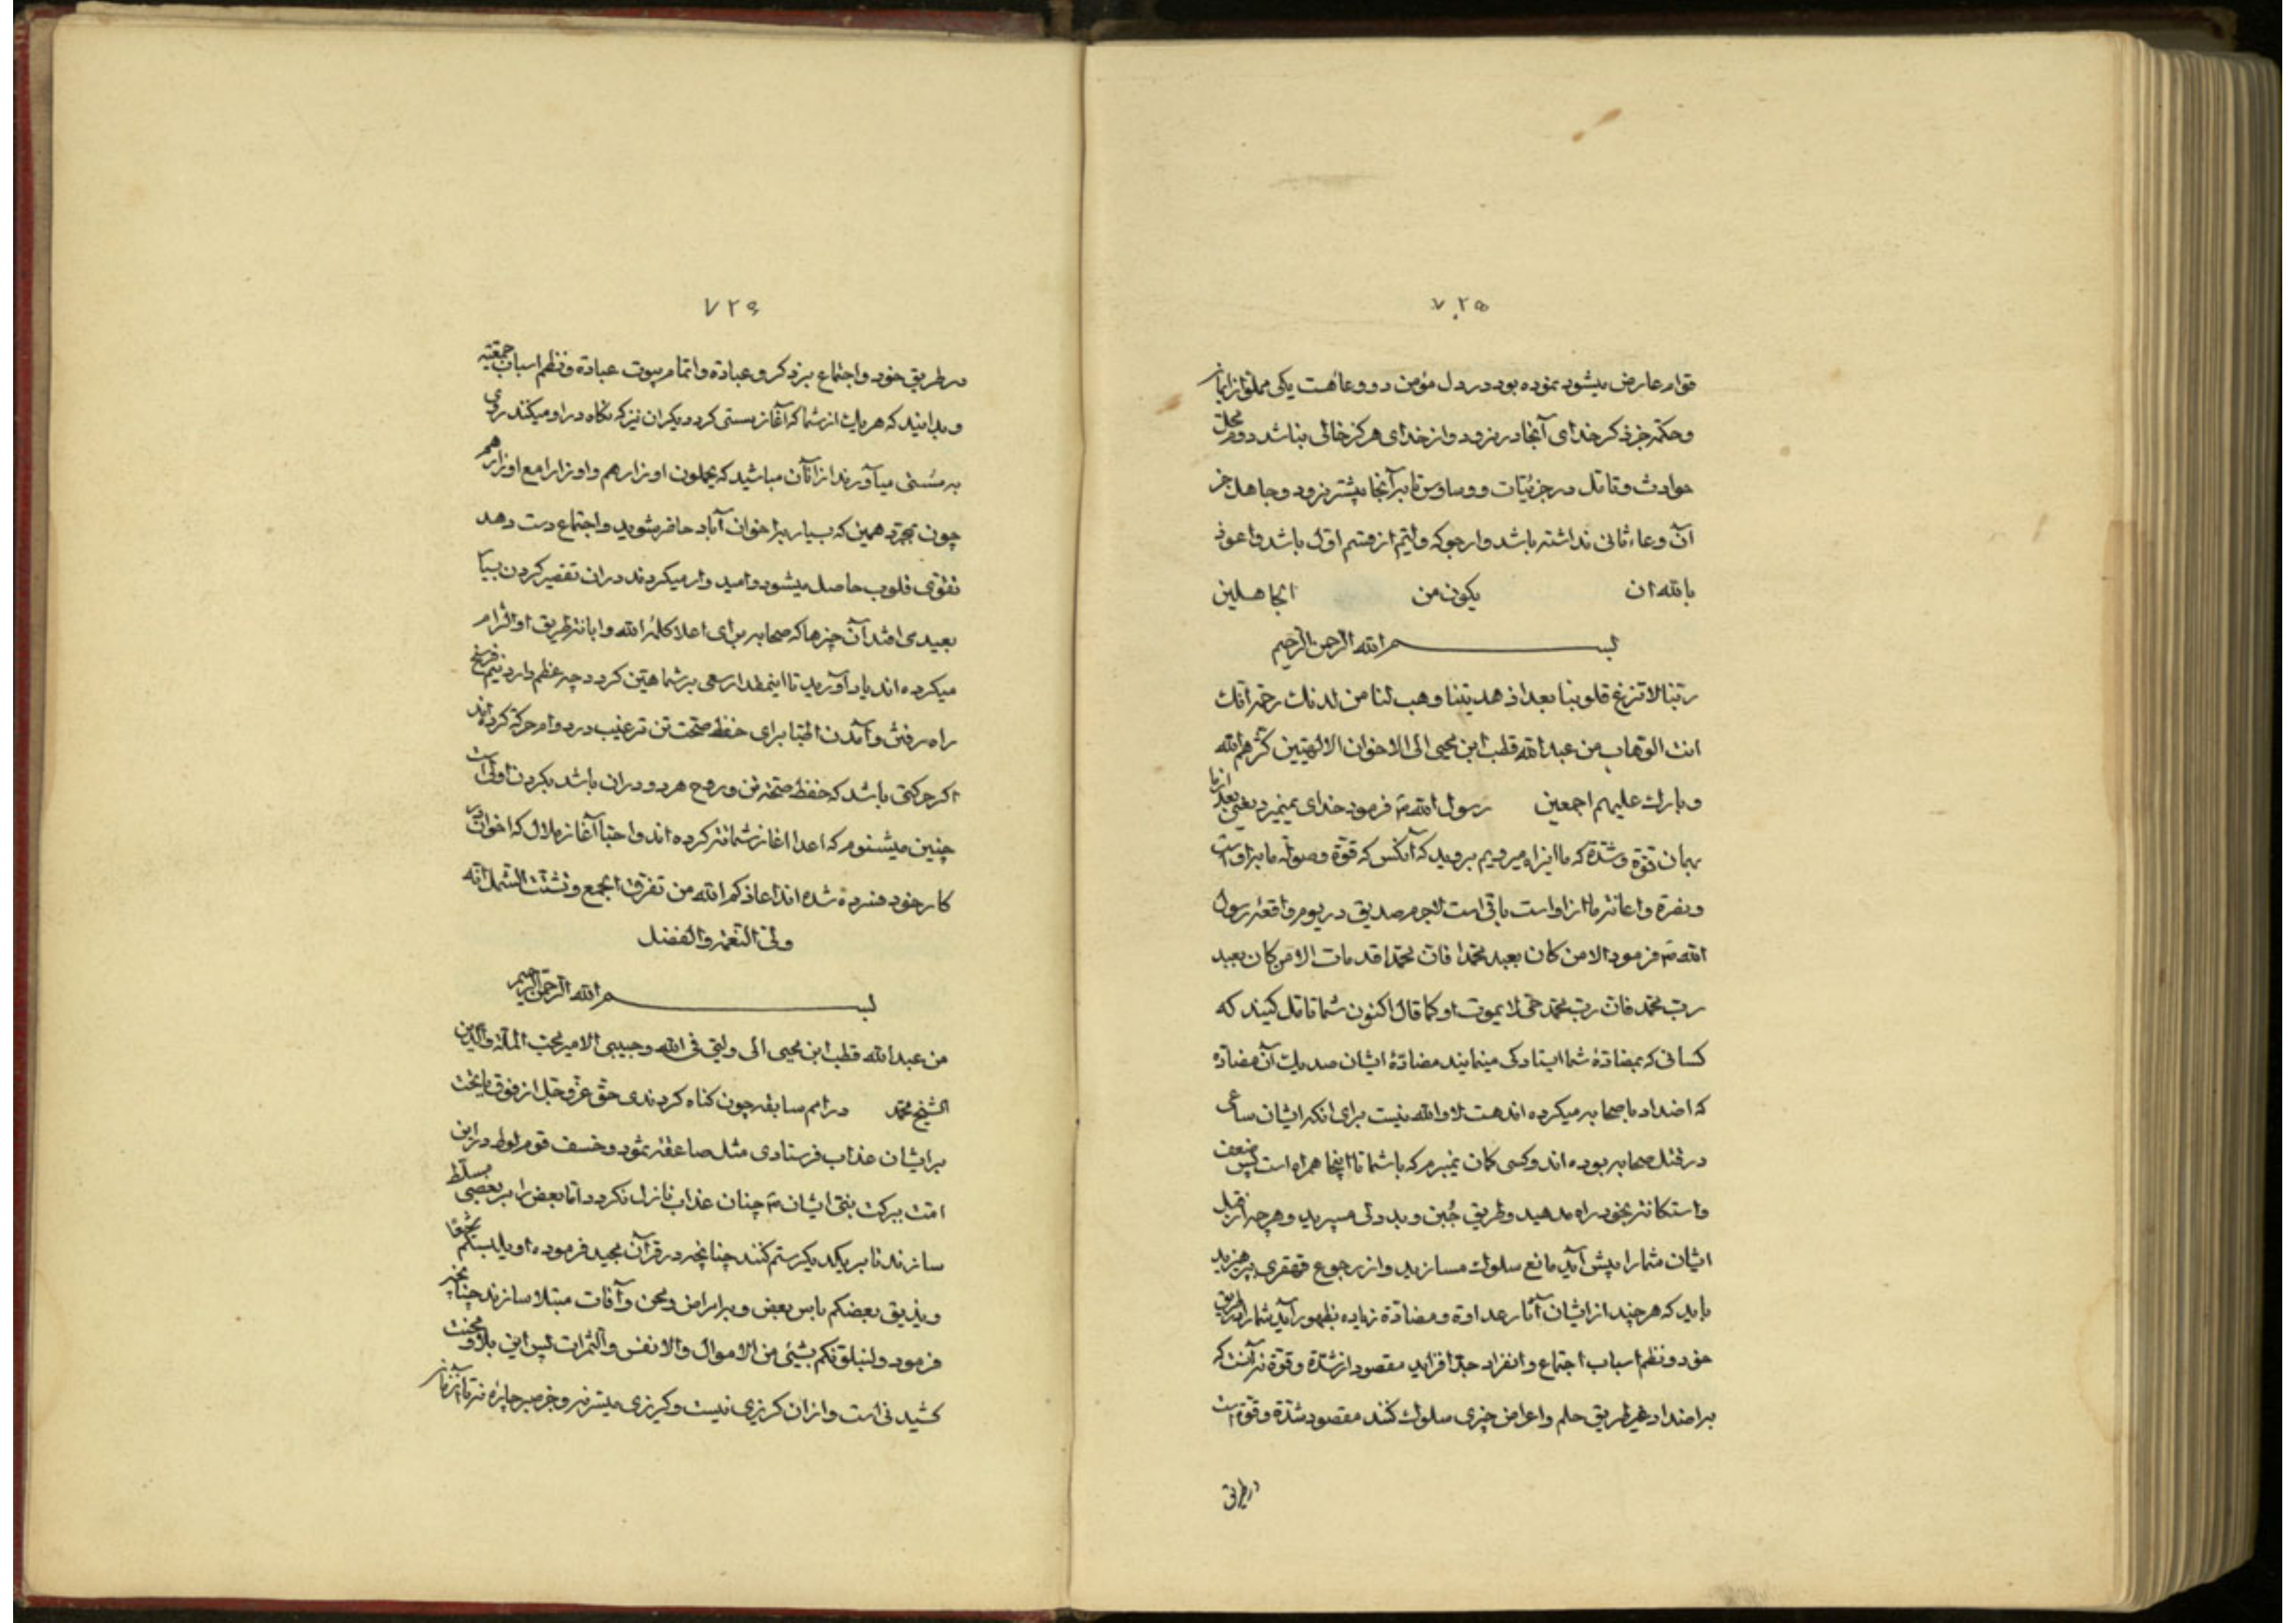 ۷۲۵
قوام عارض میشود نموده بود در دل مؤمن دو وعا هست یکی مملو از ایمان
وحکمة جز ذکر خدای آنجا در نرود واز خدای هرگز خالی نباشد دوم محل
حوادث وتامل در جزئیات ووساوس تا برآنجا پیشتر نرود وجاهل جز
آن وعاء ثانی نداشته باشد وارجو که ولیّم از قسم اول باشد واعوذ
بالله ان یکون من الجاهلین
بسم الله الرحمن الرحیم
ربّنا لاتزغ قلوبنا بعد اذ هدیتنا وهب لنا من لدنك رحمة انك
انت الوهاب من عبد الله قطب ابن محیی الی الاخوان الالهیین کثّرهم الله
وبارك علیهم اجمعین رسول الله ص فرمود خدای نمیمیرد یعنی بعد از ما
بهمان قوّة وشدّة که ما اینراه میرویم بروید که آنکس که قوّة وصولة ما براو است
ونصرة واعانة ما از اواست باقی است لاجرم صدیق در یوم واقعۀ رسول
الله ص فرمود الا من کان یعبد محمّدا فان محمّدا قد مات الا من کان یعبد
ربّ محمّد فان ربّ محمّد حیّ لا یموت او کما قال اکنون شما تامل کنید که
کسانی که بمضادّۀ شما ایستادگی مینمایند مضادّۀ ایشان صد یك آن مضادّه
که اضداد با صحابه میکرده اند هست لا والله نیست برای انکه ایشان ساعی
در قتل صحابه بوده اند وکسی کمان نمیبرم که باشما تا اینجا همراه است پس ضعف
واستکانة بخود راه مدهید وطریق جُبن وبددلی مسپرید وهرچه از قبل
ایشان شما را پیش آید مانع سلوك مسازید واز رجوع قهقری بپرهیزید
باید که هر چند از ایشان آثار عداوة ومضادّة زیاده بظهور آید شما را در طریق
خود ونظم اسباب اجتماع وانفراد جدّ افزاید مقصود از شدّة وقوّة نه آنست که
براضداد غیر طریق حلم واعراض چیزی سلوك کنند مقصود شدّة وقوّة است
در طریق
۷۲۶
در طریق خود واجتماع بر ذکر وعبادة واتمام بیوت عبادة ونظم اسباب جمعیّة
وبدانید که هریك از شما که آغاز سستی کرد دیکران نیز که نکاه در او میکنند روی
به سستی میآورند از انان مباشید که یحملون اوزارهم واوزارا مع اوزارهم
چون بمجرّد همین که بسیار براخوان آباد حاضر شوید واجتماع دست دهد
تقوّی قلوب حاصل میشود وامید وار میکردند دران تقصیر کردن بسیا
بعید می افتد آن چیزها که صحابه برای اعلا کلمۀ الله وابانة طریق او التزام
میکرده اند یاد آورید تا اینمقدار سعی بر شما هیّن کردد چه عظم دارد نیم فرسخ
راه رفتن وآمدن اطبّا برای حفظ صحّت تن ترغیب در دوام حرکة کرده اند
اکر حرکتی باشد که حفظ صحّة تن وروح هردو دران باشد بکردن اولی است
چنین میشنوم که اعدا اغاز شماتة کرده اند واحبّا آغاز ملال که اخوان در
کار خود فسرده شده اند اعاذکم الله من تفرّق الجمع وتشتّت الشمل انّه
ولیّ النعمة والفضل
بسم الله الرحمن الرحیم
من عبد الله قطب ابن محیی الی ولیّی فی الله وحبیبی الامیر محبّ الملّة والدّین
الشیخ محمّد در امم سابقه چون کناه کردندی حقّ عزّ وجلّ از فوق یا تحت
برایشان عذاب فرستادی مثل صاعقۀ ثمود وخسف قوم لوط دراین
امّت ببرکت نبیّ ایشان ص چنان عذاب نازل نکردد امّا بعض را بر بعضی مسلّط
سازند تا بر یکدیکر ستم کنند چنانچه در قرآن مجید فرموده او یلبسکم شیعًا
ویذیق بعضکم باس بعض وبرامراض ومحن وآفات مبتلا سازند چنانچه
فرمود ولنبلونّکم بشیئ من الاموال والانفس والثمرات پس این بلا ومحنت
کشیدنی است وازان کریزی نیست وکریزی میسّر نه وجز صبر چاره نه تا آنزمان